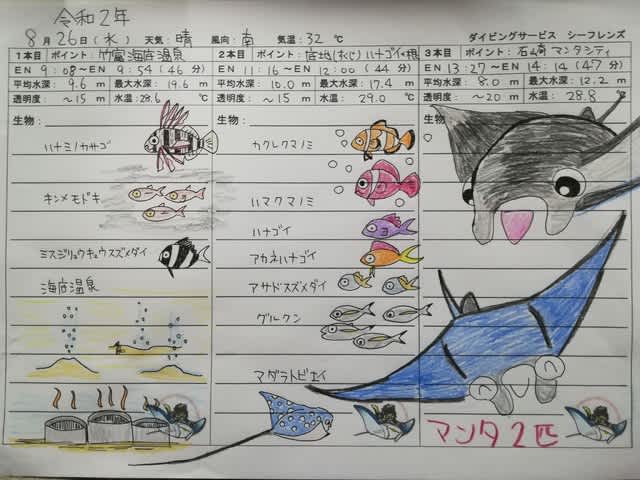 令和2年
8月26日(水) 天気:晴 風向:南 気温:32℃ ダイビングサービス シーフレンズ
1本目 ポイント:竹富海底温泉
EN 9:08〜EN 9:54(46分)
平均水深: 9.6 m 最大水深: 19.6 m
透明度: 〜15 m 水温: 28.6 ℃
生物:
ハナミノカサゴ
キンメモドキ
ミスジリュウキュウスズメダイ
海底温泉
2本目 ポイント:ハナゴイの根
EN 11:16〜EN 12:00(44分)
平均水深: 10.0 m 最大水深: 17.4 m
透明度: 〜15 m 水温: 29.0 ℃
生物:
カクレクマノミ
ハマクマノミ
ハナゴイ
アカネハナゴイ
アサドスズメダイ
グルクン
マダラトビエイ
3本目 ポイント:石崎 マンタシティ
EN 13:27〜EN 14:14(47分)
平均水深: 8.0 m 最大水深: 12.2 m
透明度: 〜20 m 水温: 28.8 ℃
生物:
マンタ2匹